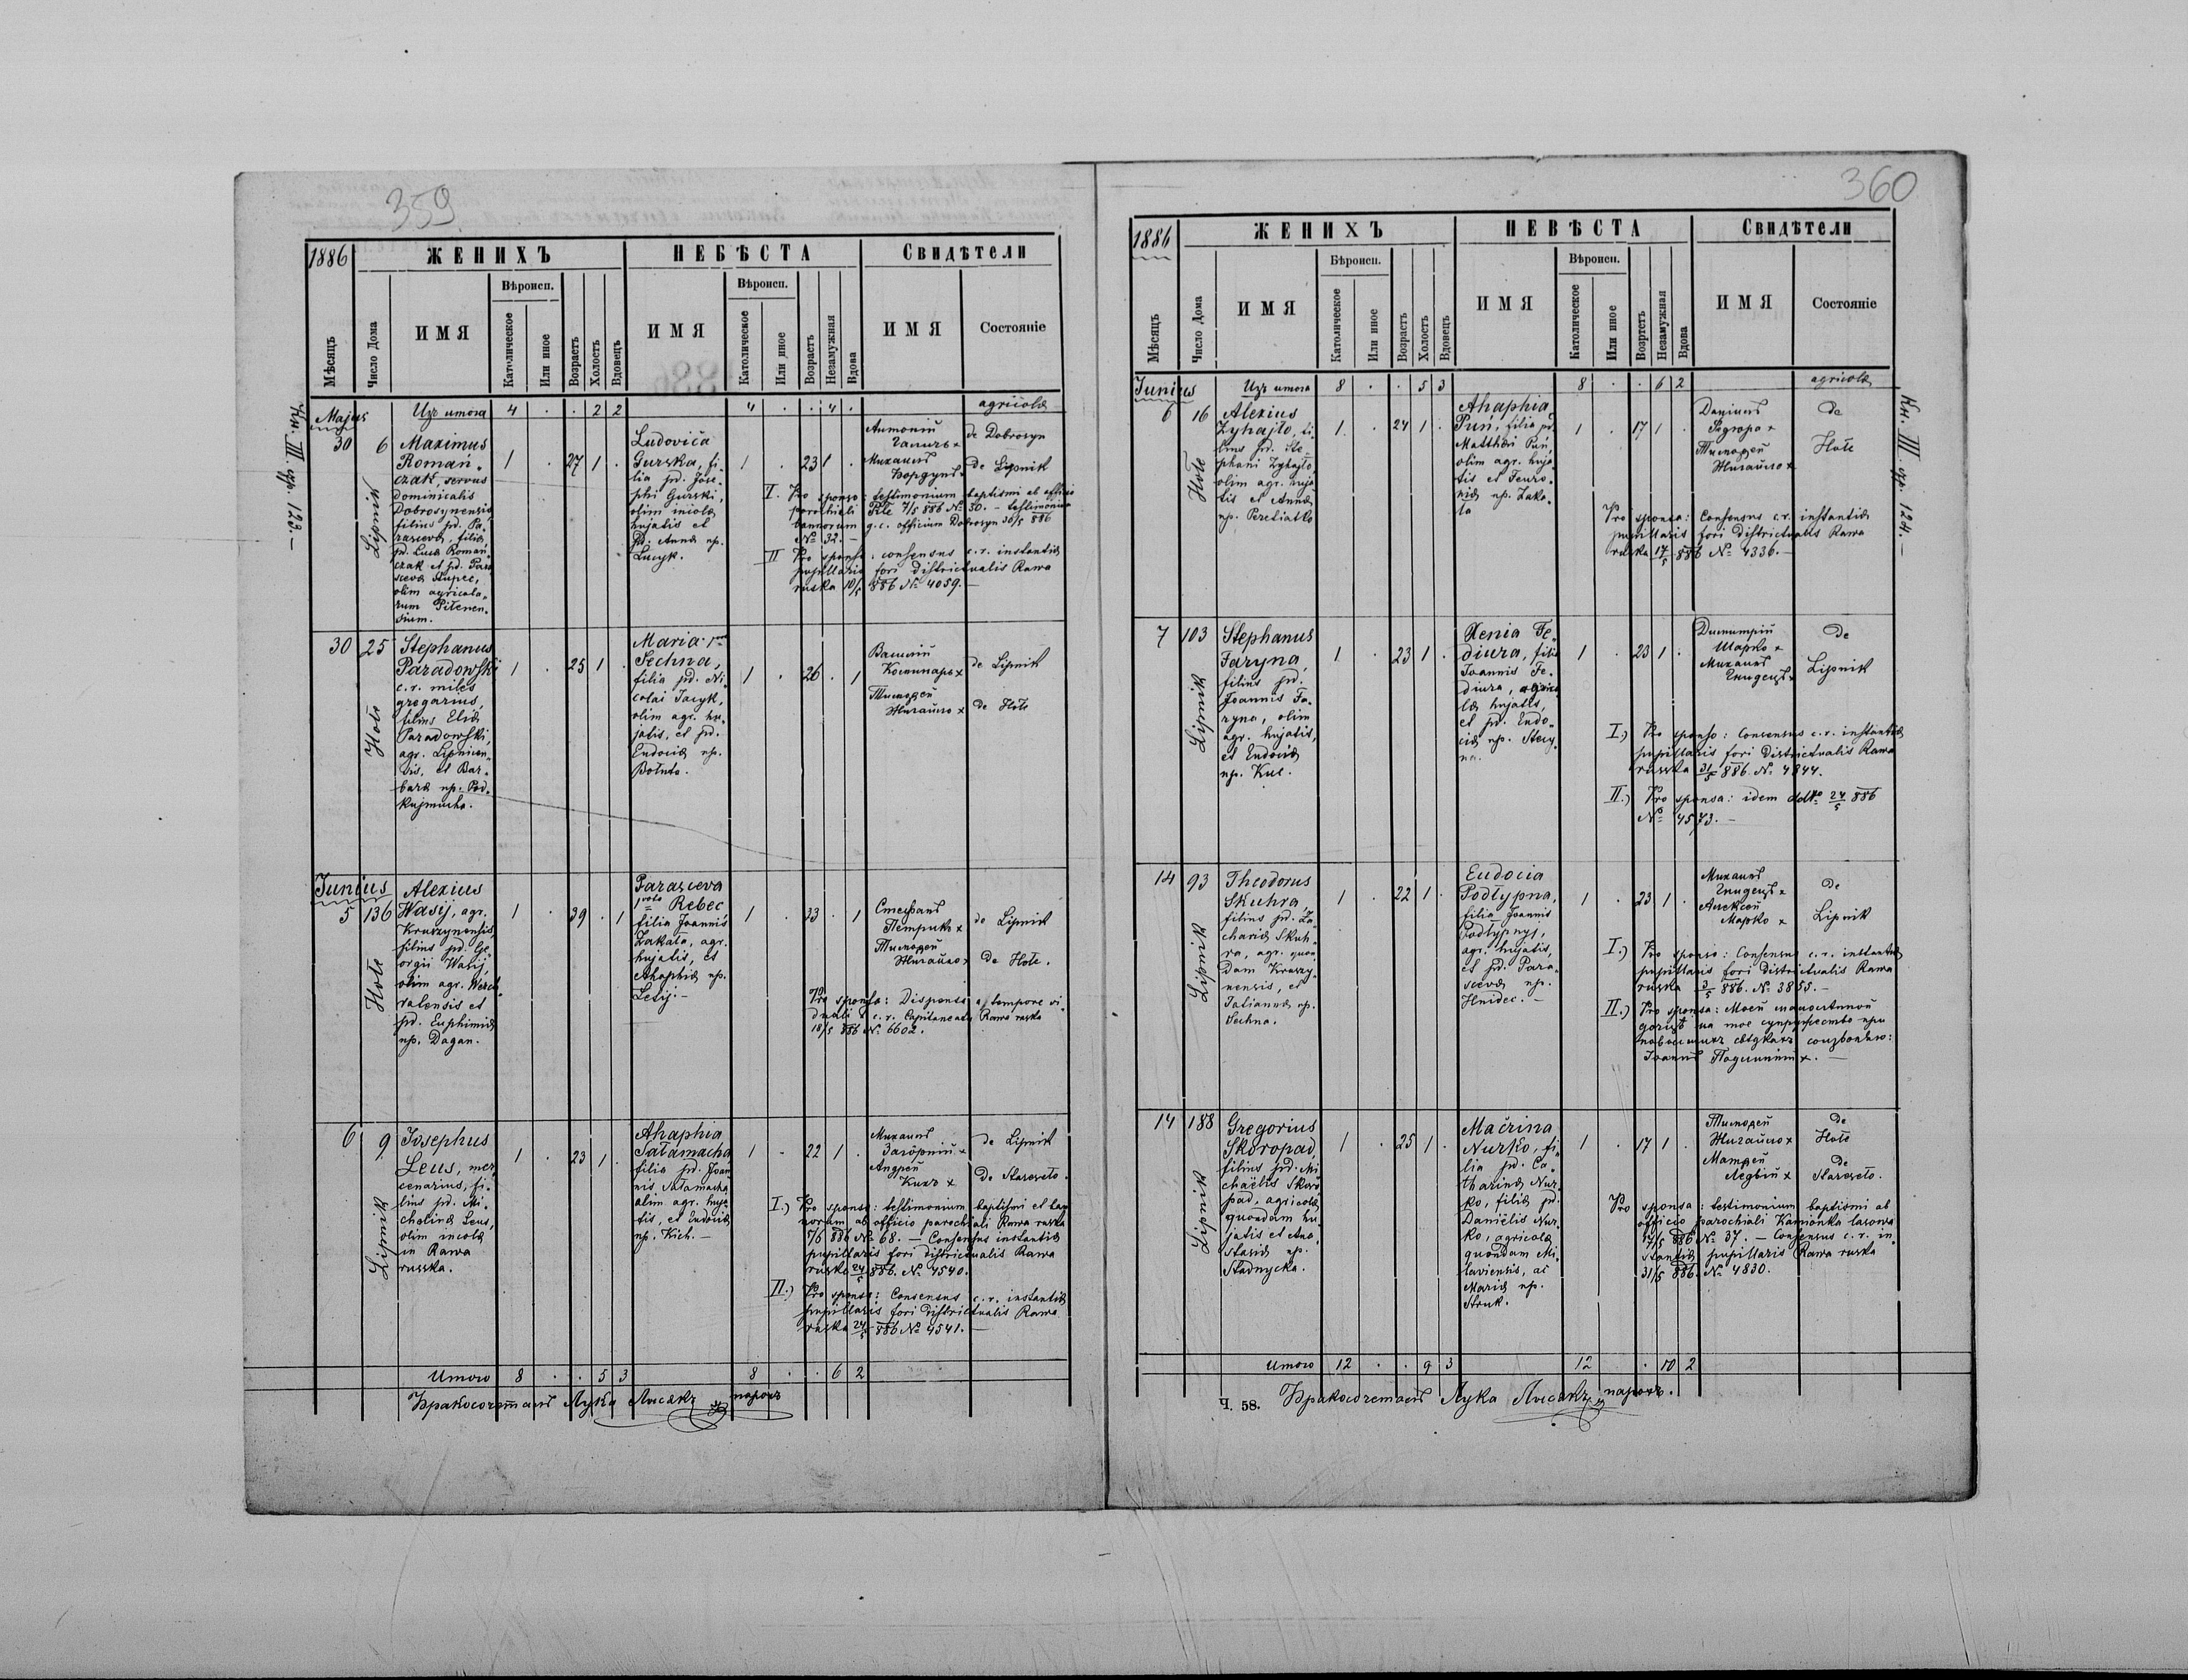 359
1886
ЖЕНИХЪ
НЕБѢСТА
Свидѣтели
Мѣсяцъ
Число Дома
ИМЯ
Вѣроисп.
Католическое
Или иное
Возрасть
Холость
Вдовець
ИМЯ
Вѣроисп.
Католическое
Или иное
Возрасть
Незамужная
Вдова
ИМЯ
Состояніе
Кн. III. стр. 123.—
Majus
Изъ итога 4 . . 2 2 4 . . 4 . agricolæ
30 6 Lipnik
Maximus
Romań-
czak, servus
Dominicalis
Dobrosynensis
filius pd. Pa-
rascevæ, filiæ
pd. Lucæ Romań-
czak et pd. Para-
scevæ Stupec,
olim agricola-
rum Piłenen-
sium.
1 . 27 1 .
Ludovica
Gurska, fi-
lia pd. Jose-
phi Gurski,
olim incolæ
hujatis et
pd. Annæ np.
Lucyk.
1 . 23 1 .
Антоній
Михаилъ
Бордунъ
de Dobrosyn
de Lipnik
I. Pro sponso: testimonium baptismi ab officio
parochiali Piłe 7/5 886 № 30. – testimonium
bannorum g.c. officium Dobrosyn 30/5 886
№ 32. —
II Pro sponsa: consensus c.r. instantiæ
pupillaris fori districtualis Rawa
ruska 10/5 886 № 4059. —
30 25 Hołe
Stephanus
Paradowski
c.r. miles
gregarius,
filius Eliæ
Paradowski,
agr. Lipnicen-
sis, et Bar-
baræ np. Pod-
kujmucha.
1 . 25 1 .
Maria
Sechna,
filia pd. Ni-
colai Jacyk,
olim agr. hu-
jatis, et pd.
Eudociæ np.
Bołuta.
1 . 26 . 1
Василій
Тимофей
Жигайло х
de Lipnik
de Hołe
Junius
5 136 Hołe
Alexius
Wasij, agr.
Kruszynensis,
filius pd. Ge-
orgii Wasij,
olim agr. Werch-
ratensis et
pd. Euphimiæ
np. Dagan.
1 . 39 . 1
Parasceva
1voto Rebec
filia Joannis
Zakała, agr.
hujatis, et
Ahaphiæ np.
Lesij. –
1 . 33 . 1
Стефанъ
Петрикъ х
Тимофей
Жигайло х
de Lipnik
de Hołe.
Pro sponsa: Dispensa a tempore vi-
duali a c.r. Capitaneatu Rawa ruska
18/5 886 № 6602.
6 9 Lipnik
Josephus
Leus, mer-
cenarius, fi-
lius pd. Mi-
chalinæ Leus,
olim incolæ
in Rawa
russka.
1 . 23 1 .
Ahaphia
Sałamacha,
filia pd. Joan-
nis Sałamacha,
olim agr. huja-
tis, et Eudociæ
np. Kich. —
1 . 22 1 .
Михаилъ
Андрей
Кихъ х
de Lipnik
de Staresioło.
I.) Pro sponso: testimonium baptismi et ban-
norum ab officio parochiali Rawa ruska
5/6 886 № 68. — Consensus instantiæ
pupillaris fori districtualis Rawa
ruska 24/5 886. № 4540.
II.) Pro sponsa: Consensus c.r. instantiæ
pupillaris fori districtualis Rawa
ruska 24/5 886 № 4541. —
Итого 8 . . 5 3 8 . . 6 2
Бракосочеталъ Лука Лисякъ парохъ
360
1886
ЖЕНИХЪ
НЕВѢСТА
Свидѣтели
Мѣсяцъ
Число Дома
ИМЯ
Бѣроисп.
Католическое
Или иное
Возрасть
Холость
Вдовець
ИМЯ
Вѣроисп.
Католическое
Или иное
Возрасть
Незамужная
Вдова
ИМЯ
Состояніе
Кн. III. стр. 124.—
Junius
Изъ итога 8 . . 5 3 8 . . 6 2 agricolæ
6 16 Hołe
Alexius
Zyhajło, fi-
lius pd. Ste-
phani Zyhajło,
olim agr. huja-
tis et Annæ
np. Perebiatko
1 . 24 1 .
Ahaphia
Puń, filia pd.
Matthæi Puń,
olim agr. huja-
tis et Feuro-
niæ np. Zaka-
ła
1 . 17 1 .
Даніилъ
Тимофей
Жигайло х
de
Hołe
Pro sponsa: Consensus c.r. instantiæ
pupillaris fori districtualis Rawa
ruska 17/5 886 № 4336. —
7 103 Lipnik
Stephanus
Faryna,
filius pd.
Joannis Fa-
ryna, olim
agr. hujatis,
et Eudociæ
np. Kuc.
1 . 23 1 .
Xenia Fe-
diura, filia
Joannis Fe-
diura, agrico-
læ hujatis,
et pd. Eudo-
ciæ np. Stecy-
na.
1 . 23 1 .
Димитрій
Шарко х
Михаилъ
Гнидецъ х
de
Lipnik
I.) Pro sponso: Consensus c.r. instantiæ
pupillaris fori Districtualis Rawa
russka 31/5 886. № 4844.
II.) Pro sponsa: idem ddto 24/5 886
№ 4573. —
14 93 Lipnik
Theodorus
Skuhra,
filius pd. Za-
chariæ Skuh-
ra, agr. quon-
dam Kruszy-
nensis, et
Tatianæ np.
Sechna.
1 . 22 1 .
Eudocia
Podłypna,
filia Joannis
Podłypnyj,
agr. hujatis,
et pd. Para-
scevæ np.
Hnidec. —
1 . 23 1 .
Михаилъ
Гнидецъ х
Алексей
Марко х
de
Lipnik
I.) Pro sponso: Consensus c.r. instantiæ
pupillaris fori Districtualis Rawa
ruska 3/5 886. № 3855. —
II.) Pro sponsa: Моей малолѣтной
на тое супружество при
соизволяю:
Іоаннъ Подлипный х. —
14 188 Lipnik
Gregorius
Skoropad,
filius pd. Mi-
chaëlis Skoro-
pad, agricolæ
quondam hu-
jatis et Ana-
stasiæ np.
Stadnycka.
1 . 25 1 .
Macrina
Nurko, fi-
lia pd. Ca-
tharinæ Nur-
ko, filiæ pd.
Daniëlis Nur-
ko, agricolæ
quondam Mi-
laviensis, ac
Mariæ np.
Struk.
1 . 17 1 .
Тимофей
Жигайло х
Матфей
Ледвій х
de
Hołe
de
Staresioło.
Pro sponsa: testimonium baptismi ab
officio parochiali Kamionka lasowa
17/5 886 № 37. — Consensus c.r. in-
stantiæ pupillaris Rawa ruska
31/5 886. № 4830.
Итого 12 . . 9 3 12 . 10 2
Ч. 58. Бракосочеталъ Лука Лисякъ парохъ.